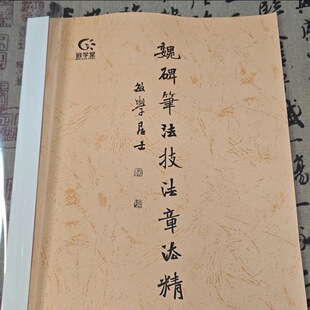 敏学堂
魏碑筆法技法章法精
敏學居士